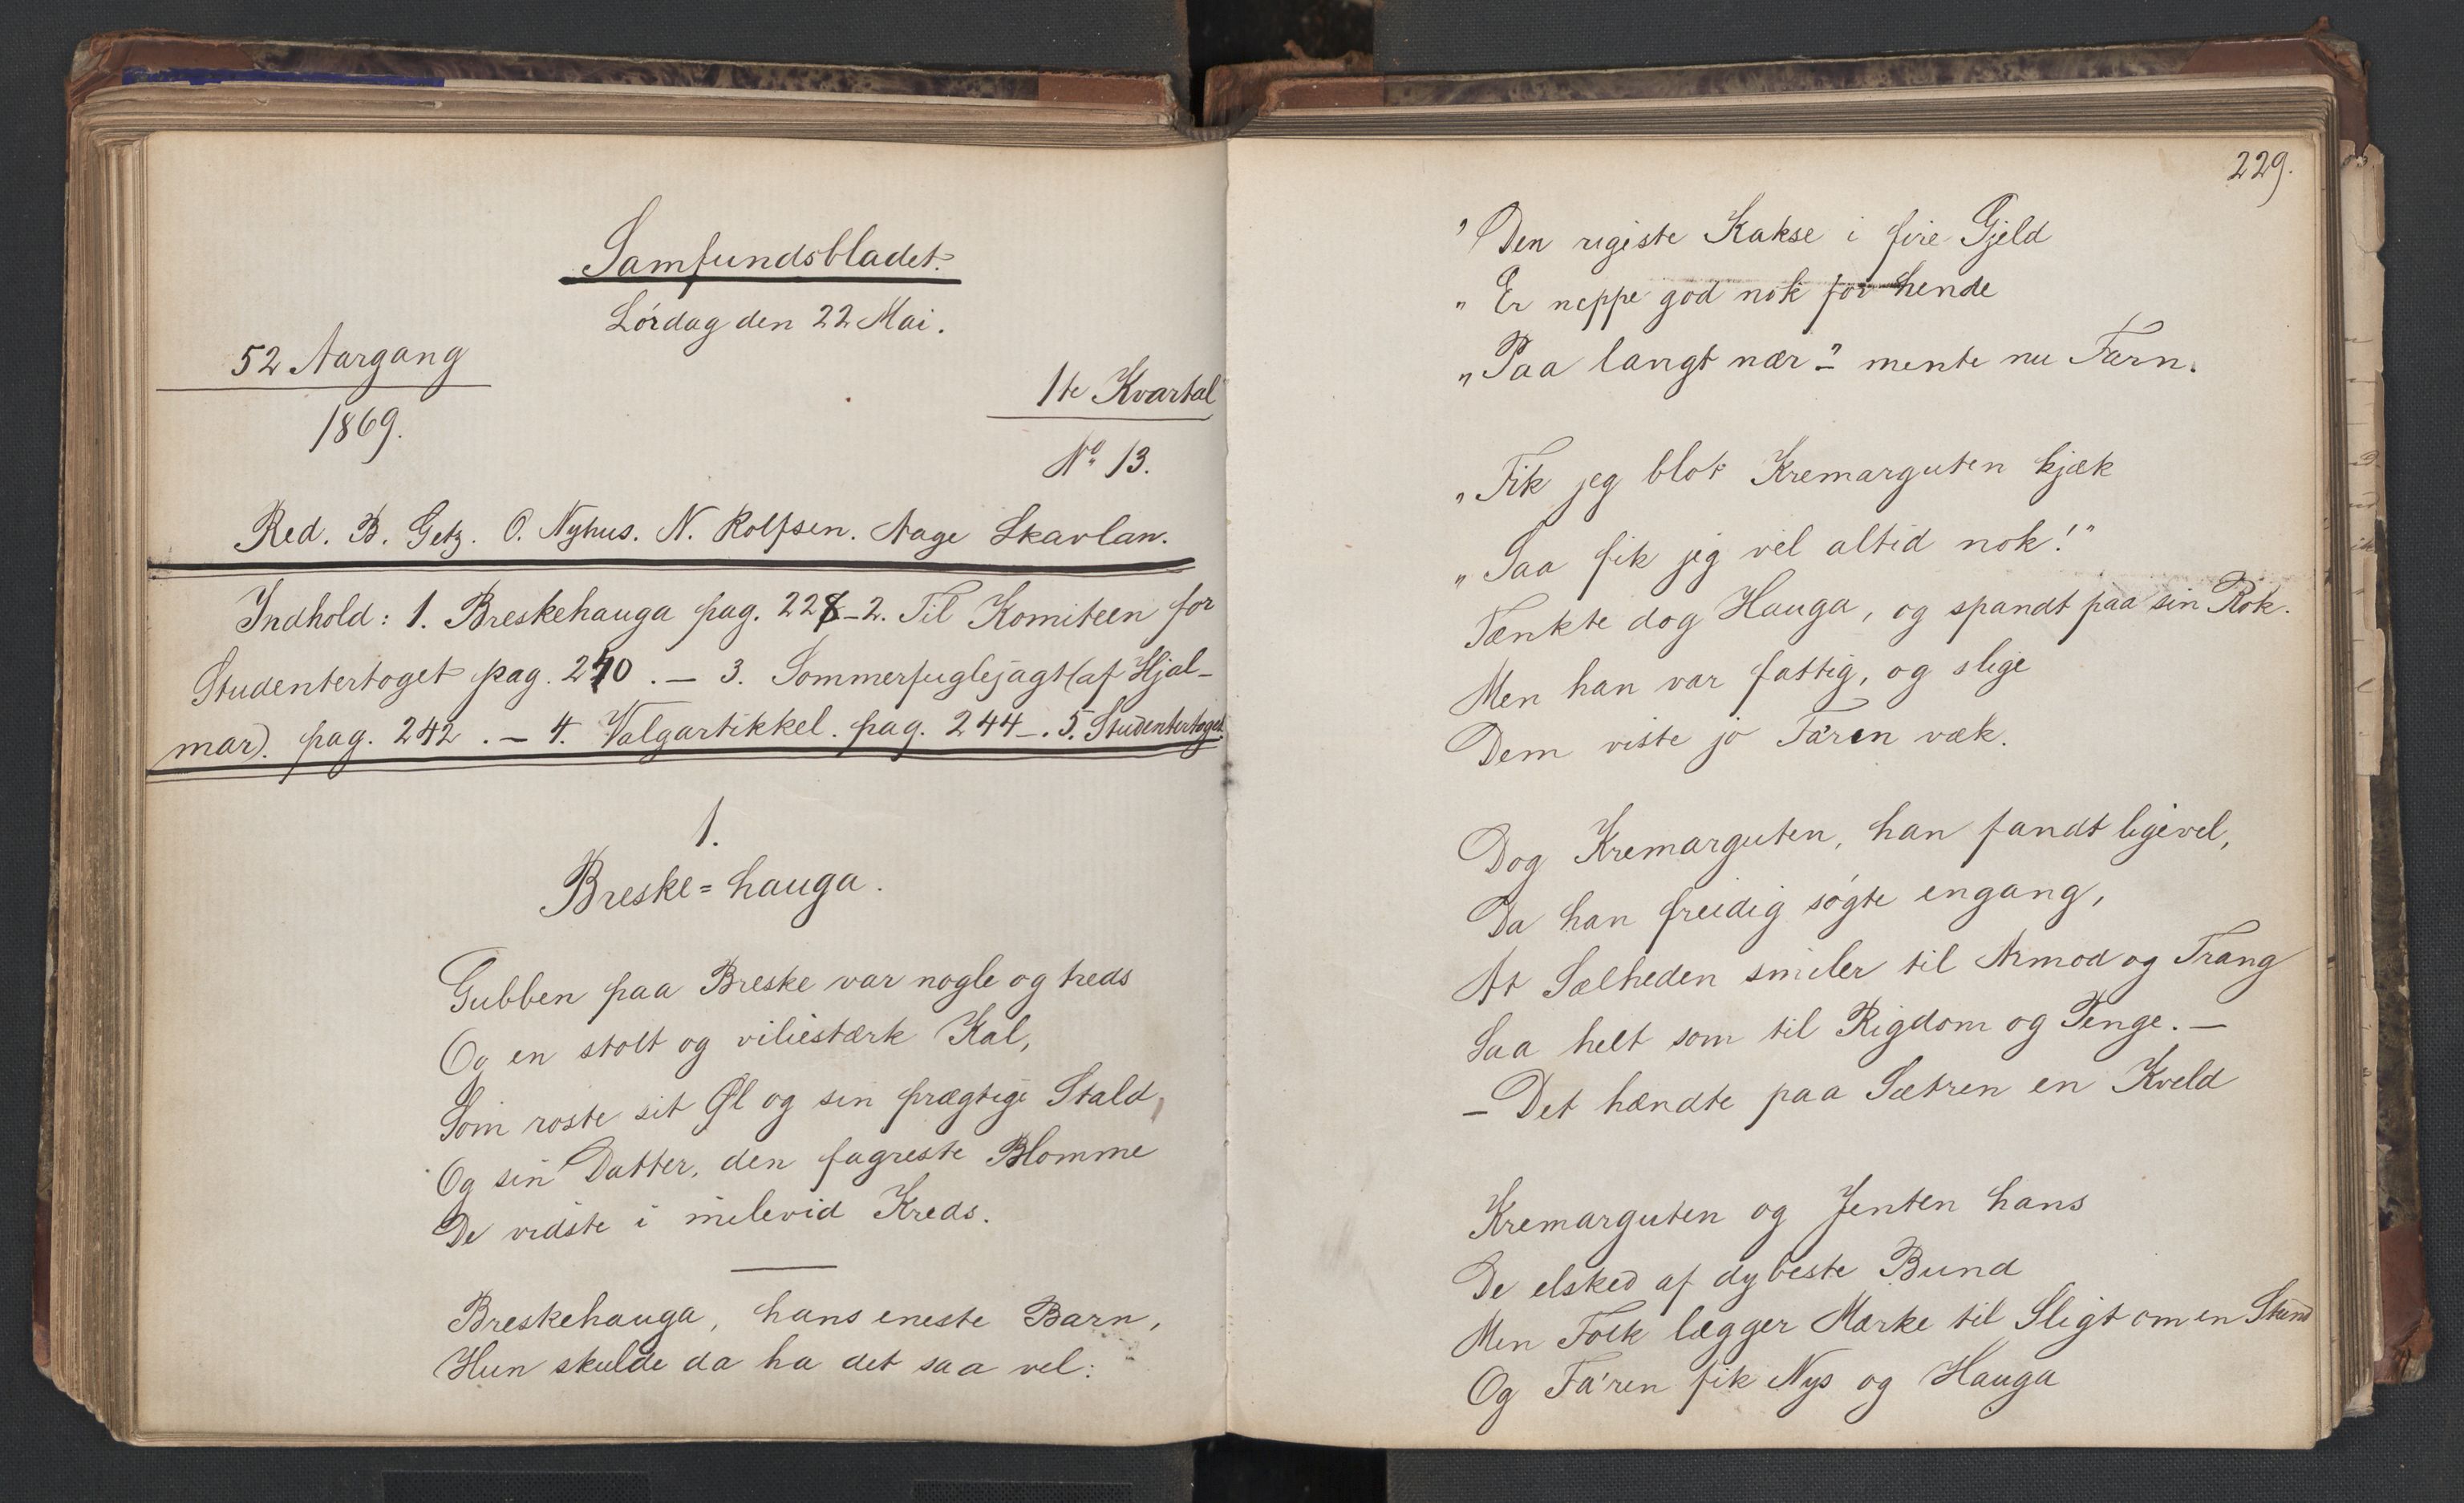 Samfundsbladet.
Lördag den 22 Mai.
52 Aargang
1869.
1te Kvartal
No 13.
Red. B. Getz. O. Nyhus. N. Rolfsen. Aage Skavlan.
Indhold: 1. Breskehauga pag. 228 – 2. Til Komiteen for
Studentertoget pag. 240. – 3. Sommerfuglejagt (af Hjal-
mar). pag. 242. – 4. Valgartikkel. pag. 244 –. 5. Studentertoget.
1.
Breske=hauga.
Gubben paa Breske var nogle og treds
Og en stolt og viliestærk Kal,
Som roste sit Øl og sin prægtige Stald,
Og sin Datter, den fagreste Blomme
De vidste i milevid Kreds.
Breskehauga, hans eneste Barn,
Hun skulde da ha det saa vel:
229.
"Den rigeste Kakse i fire Gjeld
"Er neppe god nok for hende
"Paa langt nær –" mente nu Farn.
"Fik jeg blot Kremarguten kjæk
"Saa fik jeg vel altid nok!"
Tænkte dog Hauga, og spandt paa sin Rok.
Men han var fattig, og slige
Dem viste jo Fa'ren væk.
Dog Kremarguten, han fandt ligevel,
Da han freidig søgte engang,
At Sælheden smiler til Armod og Trang
Saa helt som til Rigdom og Penge. –
– Det hændte paa Sætren en Kveld
Kremarguten og Jenten hans
De elsked af dybeste Bund
Men Folk lægger Mærke til Sligt om en Stund
Og Fa'ren fik Nys og Hauga